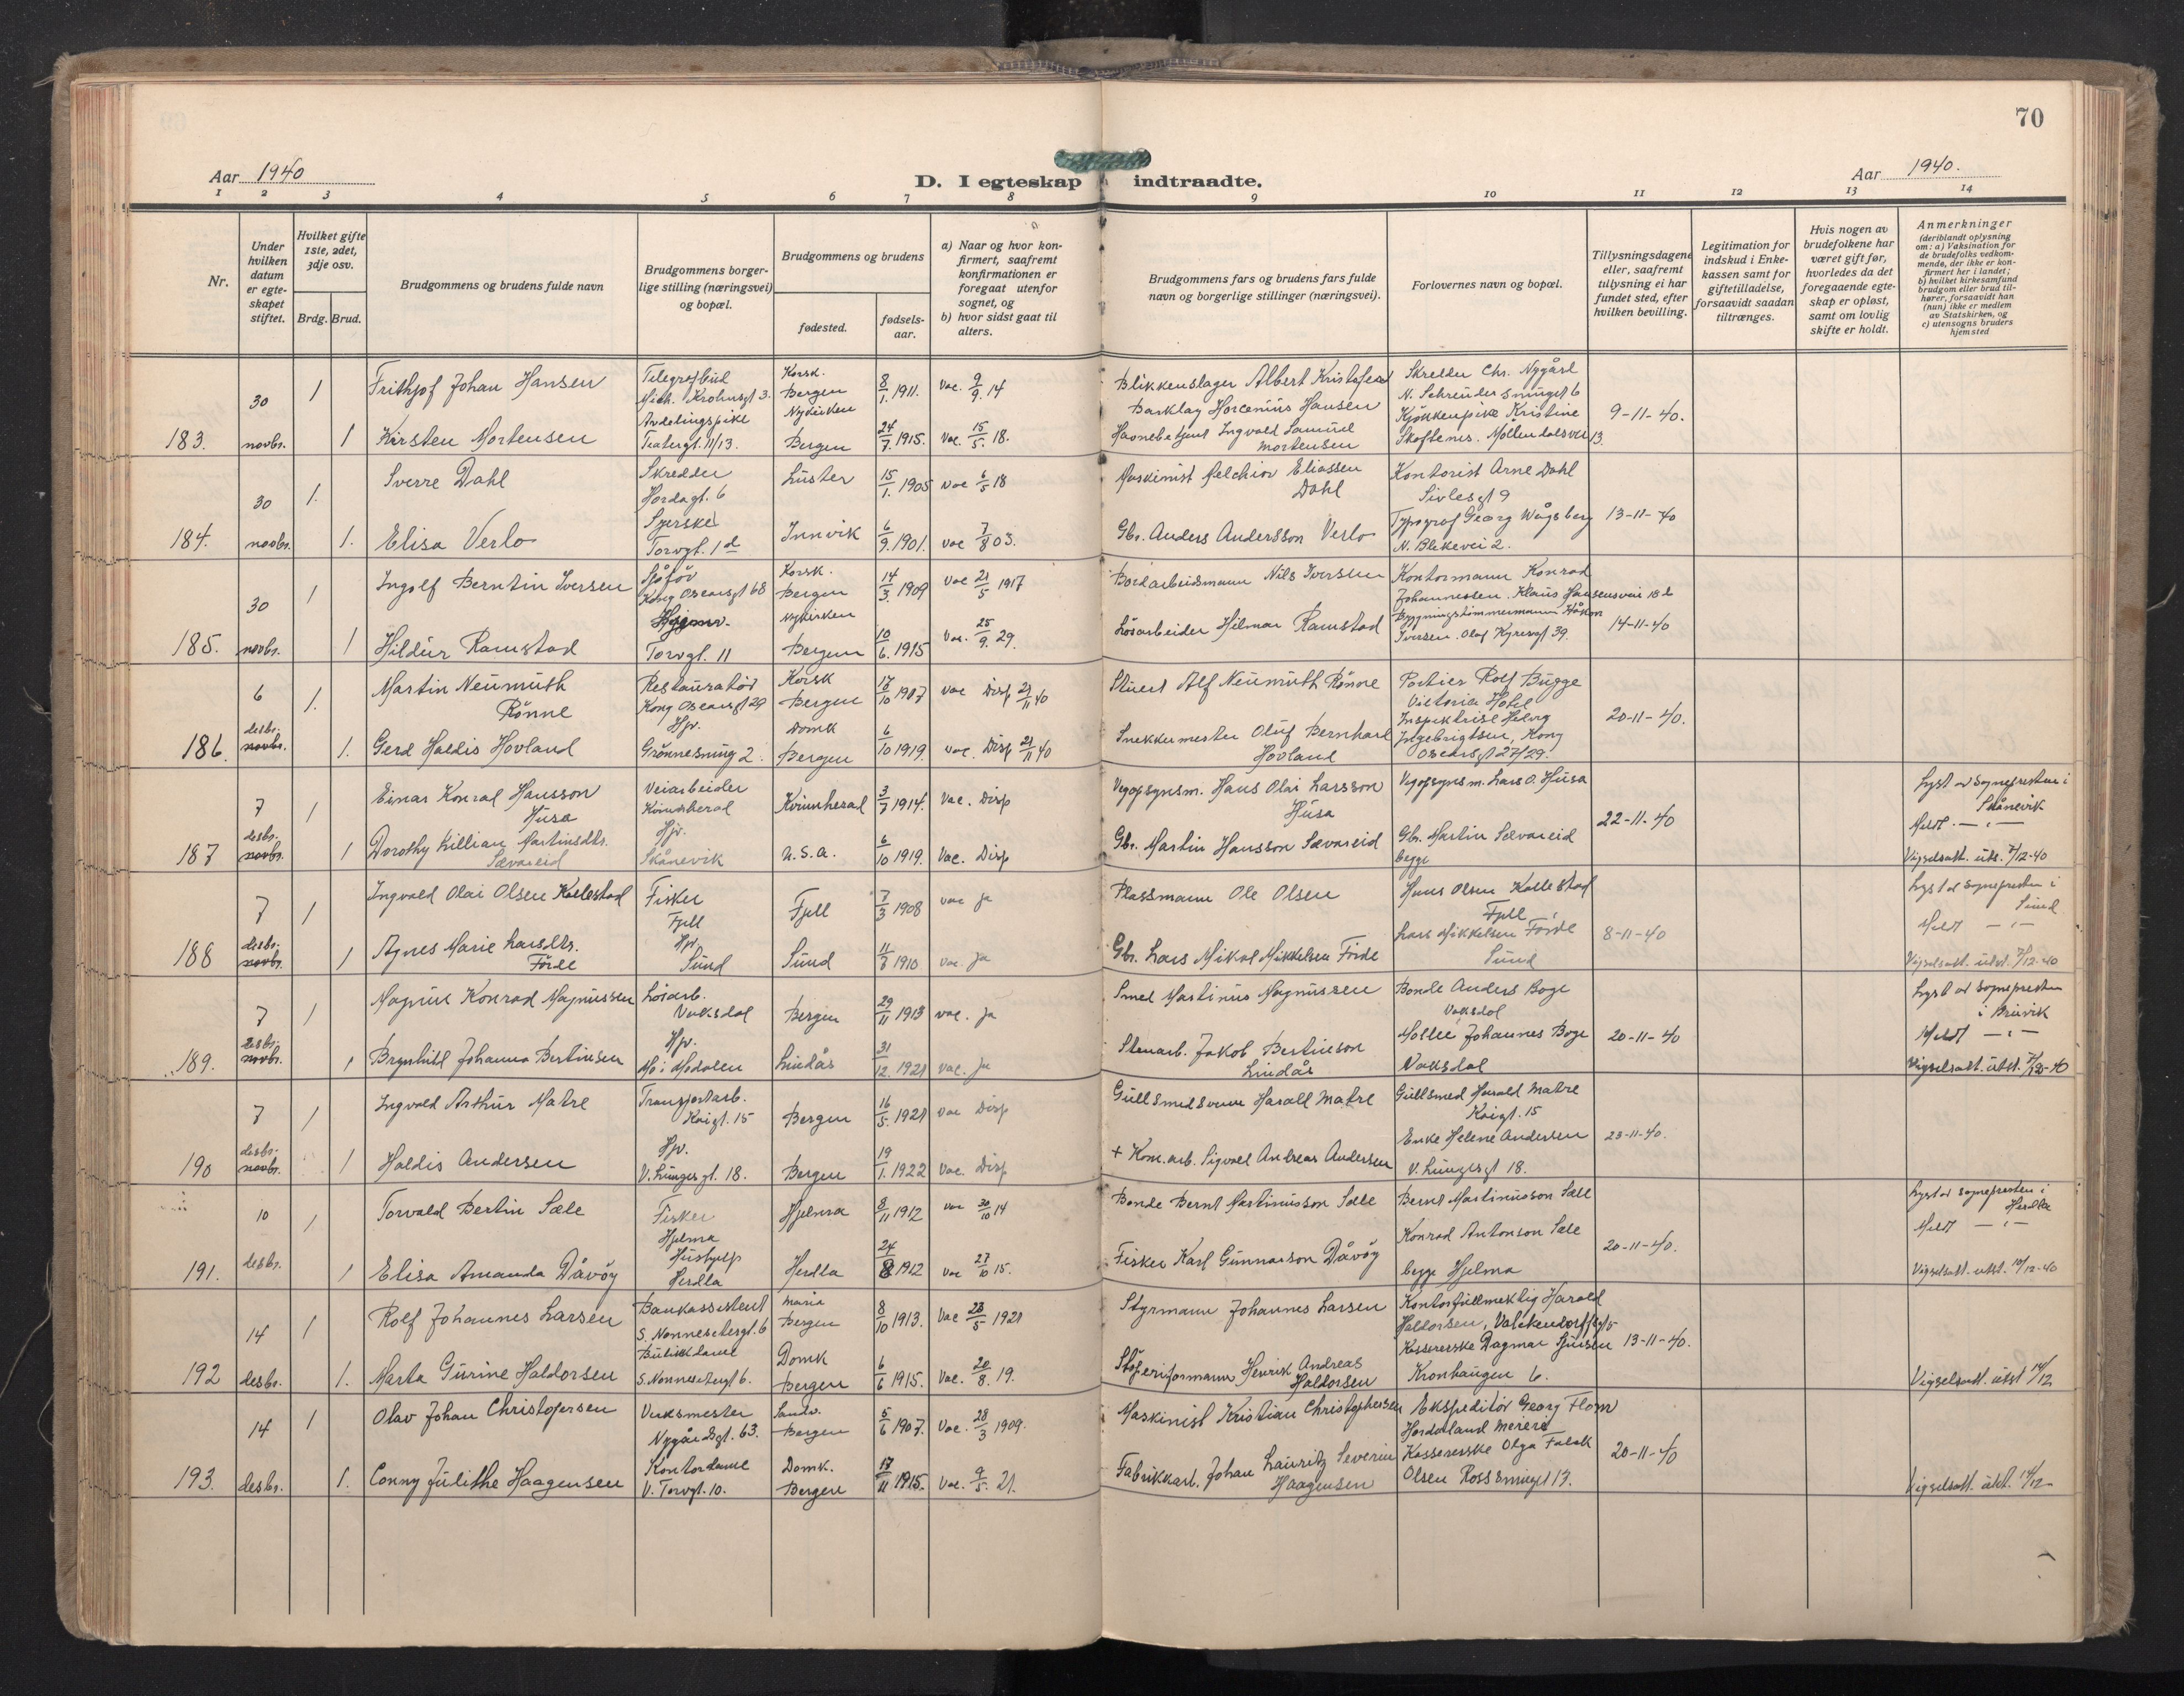 70
Aar 1940
D. I egteskap indtraadte.
Aar 1940.
1 2 3 4 5 6 7 8 9 10 11 12 13 14
Nr.
Under hvilken datum er egte-skapet stiftet.
Hvilket gifte 1ste, 2det, 3dje osv.
Brdg. Brud.
Brudgommens og brudens fulde navn
Brudgommens borger-lige stilling (næringsvei) og bopæl.
Brudgommens og brudens
fødested.
fødsels-aar.
a) Naar og hvor kon-firmert, saafremt konfirmationen er foregaat utenfor sognet, og
b) hvor sidst gaat til alters.
Brudgommens fars og brudens fars fulde navn og borgerlige stillinger (næringsvei).
Forlovernes navn og bopæl.
Tillysningsdagene eller, saafremt tillysning ei har fundet sted, efter hvilken bevilling.
Legitimation for indskud i Enke-kassen samt for giftetilladelse, forsaavidt saadan tiltrænges.
Hvis nogen av brudefolkene har været gift før, hvorledes da det foregaaende egte-skap er opløst, samt om lovlig skifte er holdt.
Anmerkninger
(deriblandt oplysning om: a) Vaksination for de brudefolks vedkom-mende, der ikke er kon-firmert her i landet; b) hvilket kirkesamfund brudgom eller brud til-hører, forsaavidt han (hun) ikke er medlem av Statskirken, og c) utensogns bruders hjemsted
183. 30 novbr. 1 1
Frithjof Johan Hansen
Telegrafbud
Mich. Krohnsgt 3.
Korsk.
Bergen
8/1. 1911.
Vac. 9/9. 14
Blikkenslager Albert Kristofer
Barklay Hansen
Skredder Chr. Nygård
N. Schreudersmuget 6
9-11-40.
Kirsten Mortensen
Avdelingspike
Teatergt. 11/13.
Nykirken
Bergen
24/7. 1915.
Vac. 15/5. 18.
Havnebetjent Ingvald Samuel
Mortensen
Kjøkkenpike Kristine
Møllendalsvei 13.
184. 30 novbr. 1. 1.
Sverre Dahl
Skredder
Hordagt. 6
Luster
15/1. 1905
vac 6/5 18
Maskinist Melchior Eliassen
Dahl
Kontorist Arne Dahl
Sivlesgt 9
13-11-40
Elisa Verlo
Syerske
Torvgt. 1d
Innvik
6/9. 1901.
vac 7/8 03.
Gbr. Anders Andersson Verlo
Typograf Georg Wågsberg
N. Blekevei 2.
185. 30 novbr. 1 1
Ingolf Berntin Iversen
Sjåfør
Kong Oscarsgt 68
Korsk.
Bergen
14/3. 1909
vac 21/5 1917
Bordarbeidsmann Nils Iversen
Kontormann Konrad
Johannessen. Klaus Hansensvei 18d
14-11-40
Hildur Ramstad
Torvgt. 11
Nykirken
Bergen
10/6. 1915
Vac. 25/9. 29.
Løsarbeider Hjelmar Ramstad
Bygningstømmermann Håkon
Iversen. Olaf Kyresgt 39.
186. 6 desbr. novbr. 1. 1.
Martin Neumuth
Rønne
Restauratør
Kong Oscarsgt 29
Korsk
Bergen
17/10 1907
vac Disp 21/11 40
Stuert Alf Neumuth Rønne
Portier Rolf Bugge
Victoria Hotel
20-11-40.
Gerd Haldis Hovland
Hjv.
Grønnesmug 2.
Domk
Bergen
6/10 1919.
vac. Disp 21/11 40
Snekkermester Oluf Bernhard
Hovland
Inspektrise Helvig
Ingebrigtsen, Kong
Oscarsgt 27/29.
187 7 desbr. novbr. 1 1
Einar Konrad Hansson
Husa
Veiarbeider
Kvinnherad
Kvinnherad
3/7 1914.
Vac. Disp
Vegopsynsm. Hans Olai Larsson
Husa
Vegopsynsm. Lars O. Husa
22-11-40
Lyst av sognepresten i
Skånevik
Meldt — " —
Vigselsatt. uts. 7/12-40
Dorothy Killian Martinsdtr.
Sævareid
Hjv.
Skånevik
U.S.A.
6/10 1919.
Vac. Disp
Gbr. Martin Hansson Sævareid
Gbr. Martin Sævareid
begge
188 7 desbr. novbr. 1 1
Ingvald Olai Olsen Kallestad
Fisker
Fjell
Fjell
7/3 1908
vac ja
Plassmann Ole Olsen
Hans Olsen Kallestad
Fjell
8-11-40
Lyst av sognepresten i
Sund
Meldt — " —
Vigselsatt. utst. 7/12-40
Agnes Marie Larsdtr.
Førde
Hjv.
Sund
Sund
11/8 1910
vac. ja
Gbr. Lars Mikal Mikkelsen Førde
Lars Mikkelsen Førde
Sund
189. 7 desbr. novbr. 1 1
Magnus Konrad Magnussen
Løsarb.
Vaksdal
Bergen
29/11 1913
vac. ja
Smed Martinus Magnussen
Bonde Anders Boge
Vaksdal
20-11-40
Lyst av sognepresten
i Bruvik
Meldt — " —
Vigselsatt. utst. 7/12-40
Brynhild Johanna Bertinsen
Hjv.
Mo i Modalen
Lindås
31/12. 1921
vac. ja
Stenarb. Jakob Bertinson
Lindås
Møller Johannes Boge
Vaksdal
190 7 desbr. novbr. 1 1
Ingvald Arthur Matre
Transportarb.
Kaigt. 15
Bergen
16/5. 1921
vac Disp
Gullsmedsvenn Harald Matre
Gullsmed Harald Matre
Kaigt. 15
23-11-40.
Haldis Andersen
Hjv.
V. Lungesgt. 18.
Bergen
19/1. 1922
Vac. Disp
+ Kom. arb. Sigvald Andreas Andersen
Enke Helene Andersen
V. Lungesgt 18.
191. 10 desbr. 1 1
Torvald Bertin Sæle
Fisker
Hjelma
Hjelma
8/11 1912
vac 30/10 14
Bonde Bernt Martinusson Sæle
Bernt Martinusson Sæle
20-11-40.
Lyst av sognepresten i
Herdla
Meldt — " —
Vigselsatt. utst. 10/12-40
Elisa Amanda Dåvøy
Hushjelp
Herdla
Herdla
24/8 1912
vac 27/10 15.
Fisker Karl Gunnarson Dåvøy
Konrad Antonson Sæle
begge Hjelma
192 14 desbr. 1 1.
Rolf Johannes Larsen
Bankassistent
S. Nonnesetergt. 6
Maria
Bergen
8/10 1913.
Vac 23/5 1921
Styrmann Johannes Larsen
Kontorfullmektig Harald
Haldorsen, Valckendorffsgt 5
13-11-40.
Vigselsatt. utst 14/12
Marta Gurine Haldorsen
Butikkdame
S. Nonnesetergt 6.
Domk
Bergen
6/6 1915.
Vac. 20/8. 19.
Støperiformann Henrik Andreas
Haldorsen
Kassererske Dagmar
Kronhaugen 6.
193. 14 desbr. 1 1.
Olav Johan Christofersen
Verksmester
Nygårdsgt. 63.
Sandv.
Bergen
5/6 1907.
Vac. 28/3 1909.
Maskinist Kristian Christophersen
Ekspeditør Georg Flom
Hordaland Meieri
20-11-40
Vigselsatt. utst. 14/12
Conny Julithe Haagensen
Kontordame
V. Torvgt. 10.
Domk.
Bergen
17/11 1915.
Vac. 9/5. 21.
Fabrikkarb. Johan Lauritz Severin
Haagensen
Kassererske Olga Falck
Olsen Rossesmuget 13.